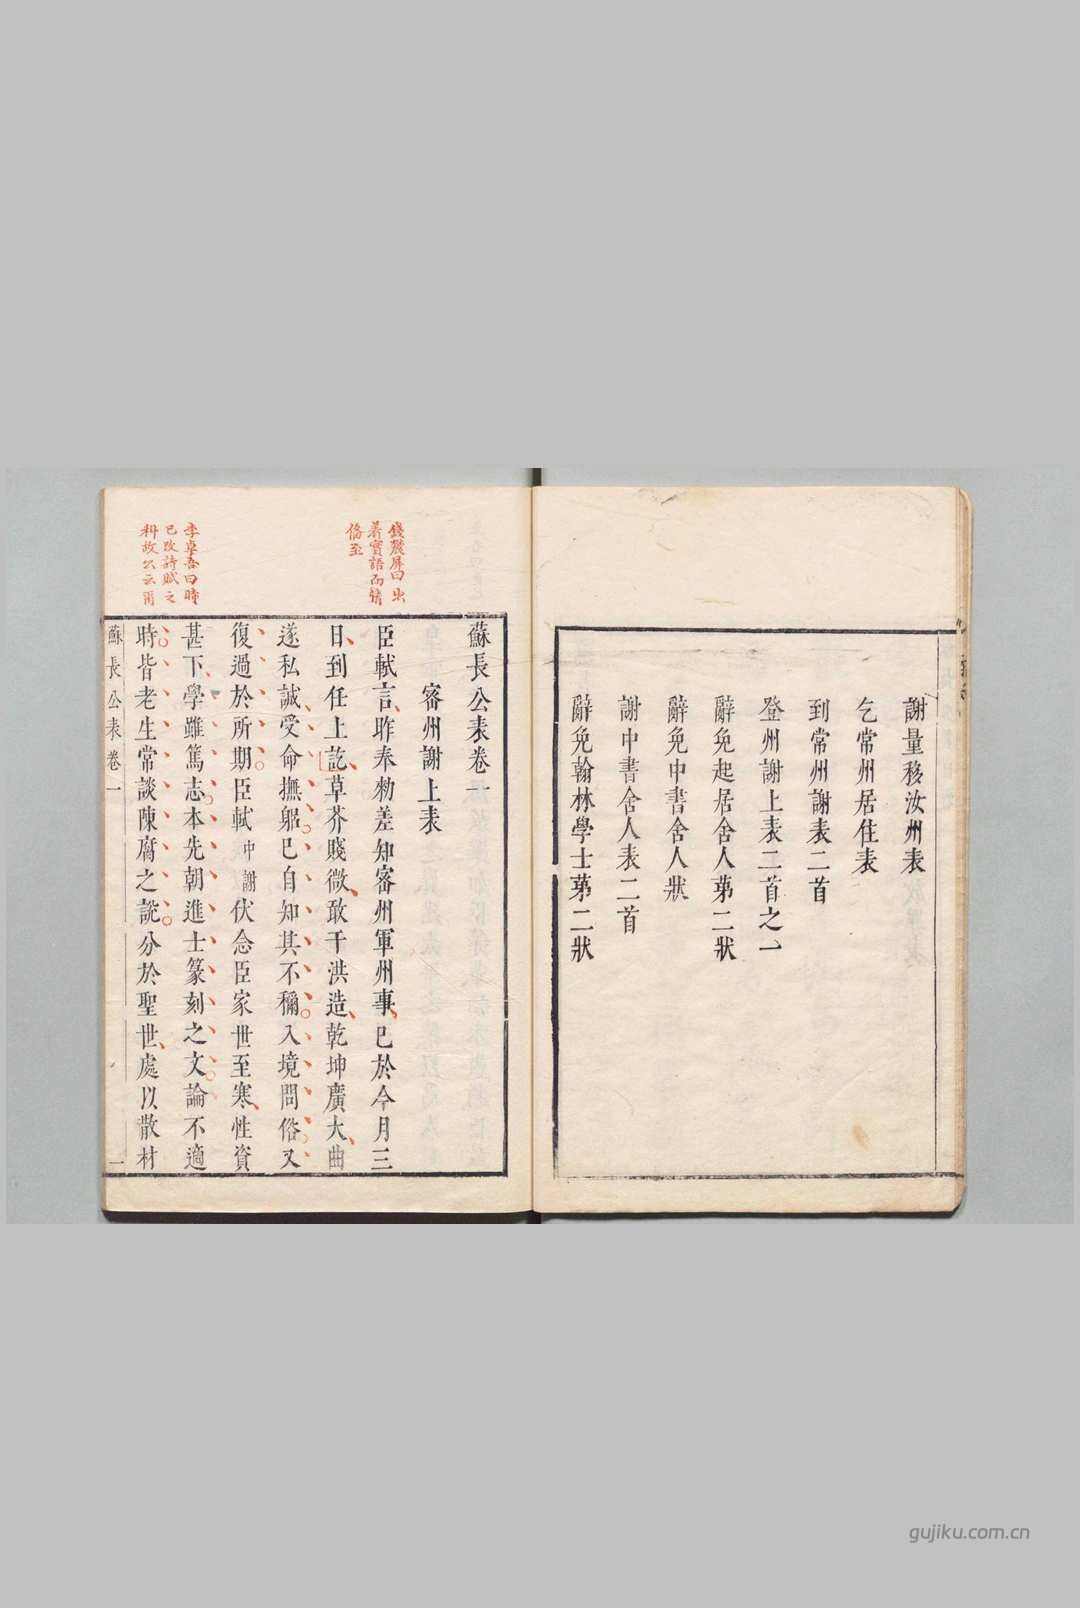 謝量移汝州表
乞常州居住表
到常州謝表二首
登州謝上表二首之一
辭免起居舍人第二狀
辭免中書舍人狀
謝中書舍人表二首
辭免翰林學士第二狀
蘇長公表卷一
密州謝上表
臣軾言昨奉勑差知密州軍州事已於今月三
日到任上訖草芥賤微敢干洪造乾坤廣大曲
遂私誠受命撫躬已自知其不稱入境問俗又
復過於所期臣軾中謝伏念臣家世至寒性資
甚下學雖篤志本先朝進士篆刻之文論不適
時皆老生常談陳腐之說分於聖世處以散材
蘇長公表卷一
一
錢䕾屏曰出
着實語而情
偹至
李卓吾曰時
已改詩賦之
科故公云爾
gujiku.com.cn